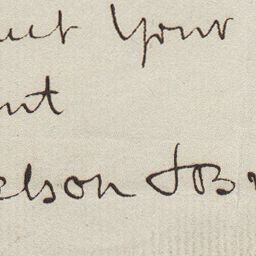 uct your
nt
elson & Br